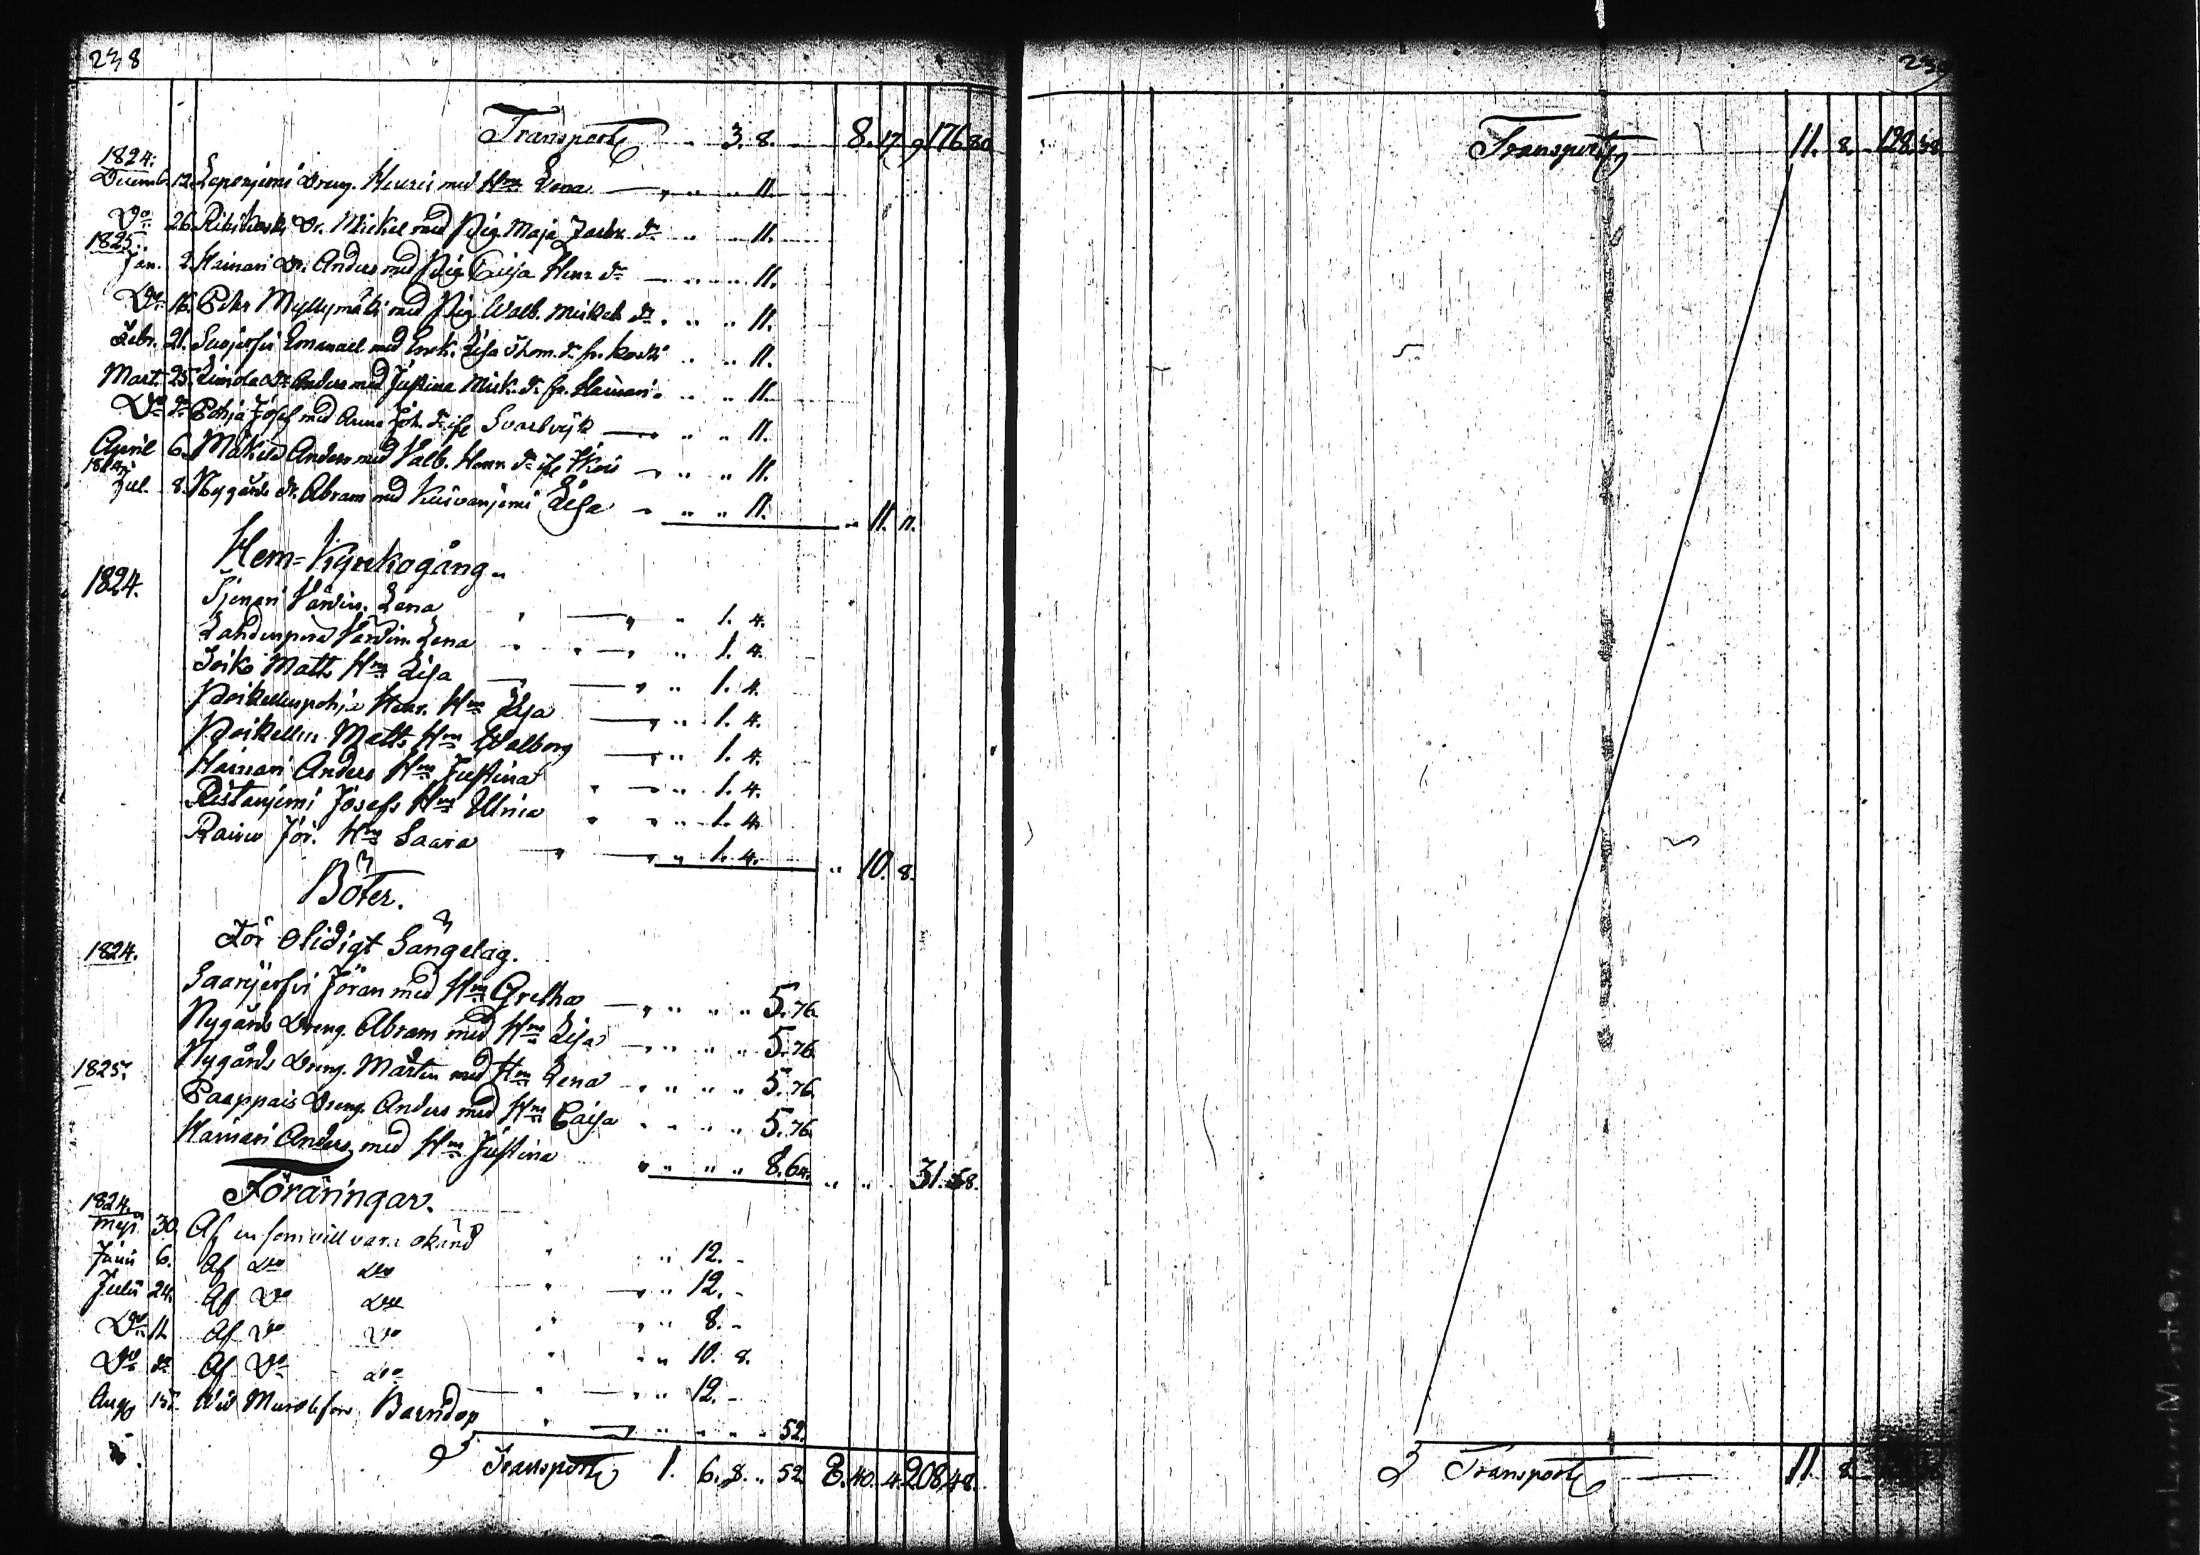 238
Transport 3. 8. 8. 17. 9. 176 80
1824.
Decemb. 12. Lepenjemi Dreng. Henric med Hu Lena 11.
Do 26. Dr. Mickel med Pig. Maja Jacbs dr 11.
1825.
Jan. 2. Hainari Dr. Anders med Pig. Caisa Henr. dr 11.
Do 16. Petr Myllymäki med Pig. Walb. Mickels dr 11.
Febr. 21. Emanuel med Enk. Lisa Thom. dr fr. Koski 11.
Mart. 25. Dr Anders med Justina Mick. dr fr. Hainari 11.
Do do Pohja Josef med Anna Joh. dr ifr Svartvik 11.
April 6. Mäkilä Anders med Valb. Henr. dr ifr 11.
1824
Jul. 8. Nygårds dr. Abram med Kuivanjemi Lisa 11. 11. 11.
Hem=Kyrkogång.
1824. Värdin. Lena 1. 4.
Lahdenperä Värdin. Lena 1. 4.
Matts Hu Lisa 1. 4.
Poikelluspohja Henr. Hu Lisa 1. 4.
Poikellus Matts Hu Walborg 1. 4.
Hainari Anders Hu Justina 1. 4.
Ristanjemi Josefs Hu Ulrica 1. 4.
Rainio Jör. Hu Saara 1. 4. 10. 8.
Böter.
1824. För olidigt Sängelag.
Saarijerfvi Jöran med Hu Gretha 5. 76.
Nygårds Dreng. Abram med Hu Lisa 5. 76.
1825. Nygårds Dreng. Martin med Hu Lena 5. 76.
Paappais Dreng. Anders med Hu Caisa 5. 76.
Hainari Anders med Hu Justina 8. 64. 31. 68.
Föräringar.
1824
Maji 30. Af en som vill vara okänd 12. -
Junii 6. Af do do 12. -
Julii 24. Af do do 8. -
Do 11. Af do do 10. 8.
Do do Af do do 12. -
Aug. 15. Wid Barndop 52.
Transport 1. 6. 8. 52. 8. 40. 4. 208 48.
239
Transport 11. 8. 128. 38
Transport 11. 8.